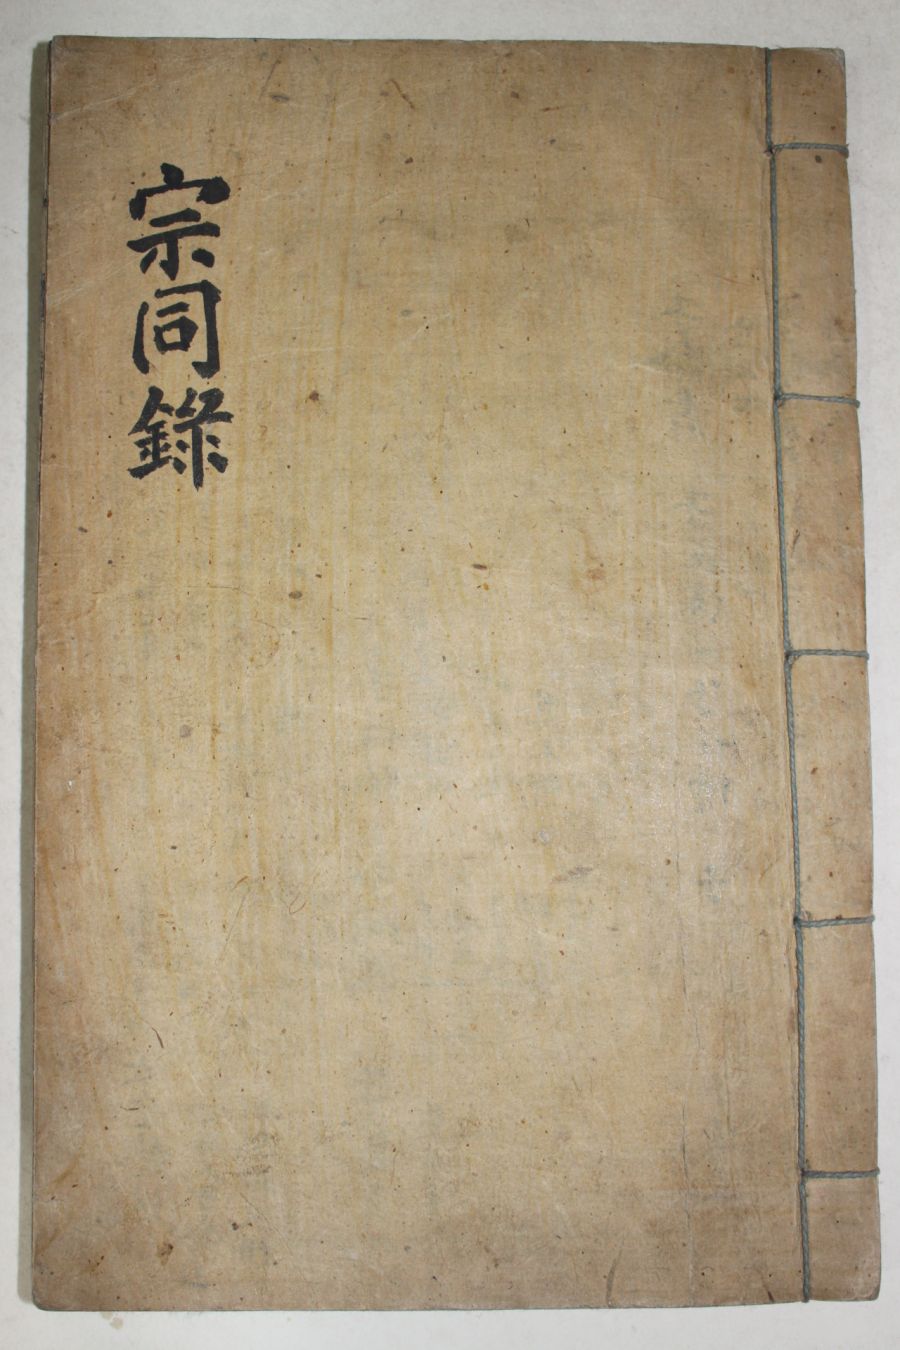 宗同錄